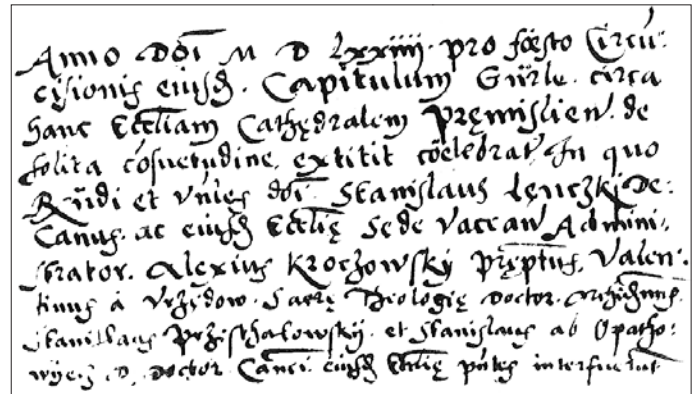 Anno Doī M D Lxxiiij. pro fœsto Circū:
cisionis eiusđ. Capitulum Gn̄rle. circa
hanc Eccliam Cathędralem Pręmislien. de
solita cōsuetudine, extitit cœlebrat. In quo
Rn̄di et Vn̄les dōi. Stanislaus Lęnczki De:
Canus. ac eiusđ Ecclię Sede Vacan Admini:
strator. Alexius Kroczowsky Pręptus, Valen:
tinus à Vrzędow. Sacrę Theologię Doctor.
Stanislaus Przisthalowskÿ. et Stanislaus ab Opatho:
wyecz D. Doctor. Canci. eiusđ Ecclię pn̄tes interfuerut